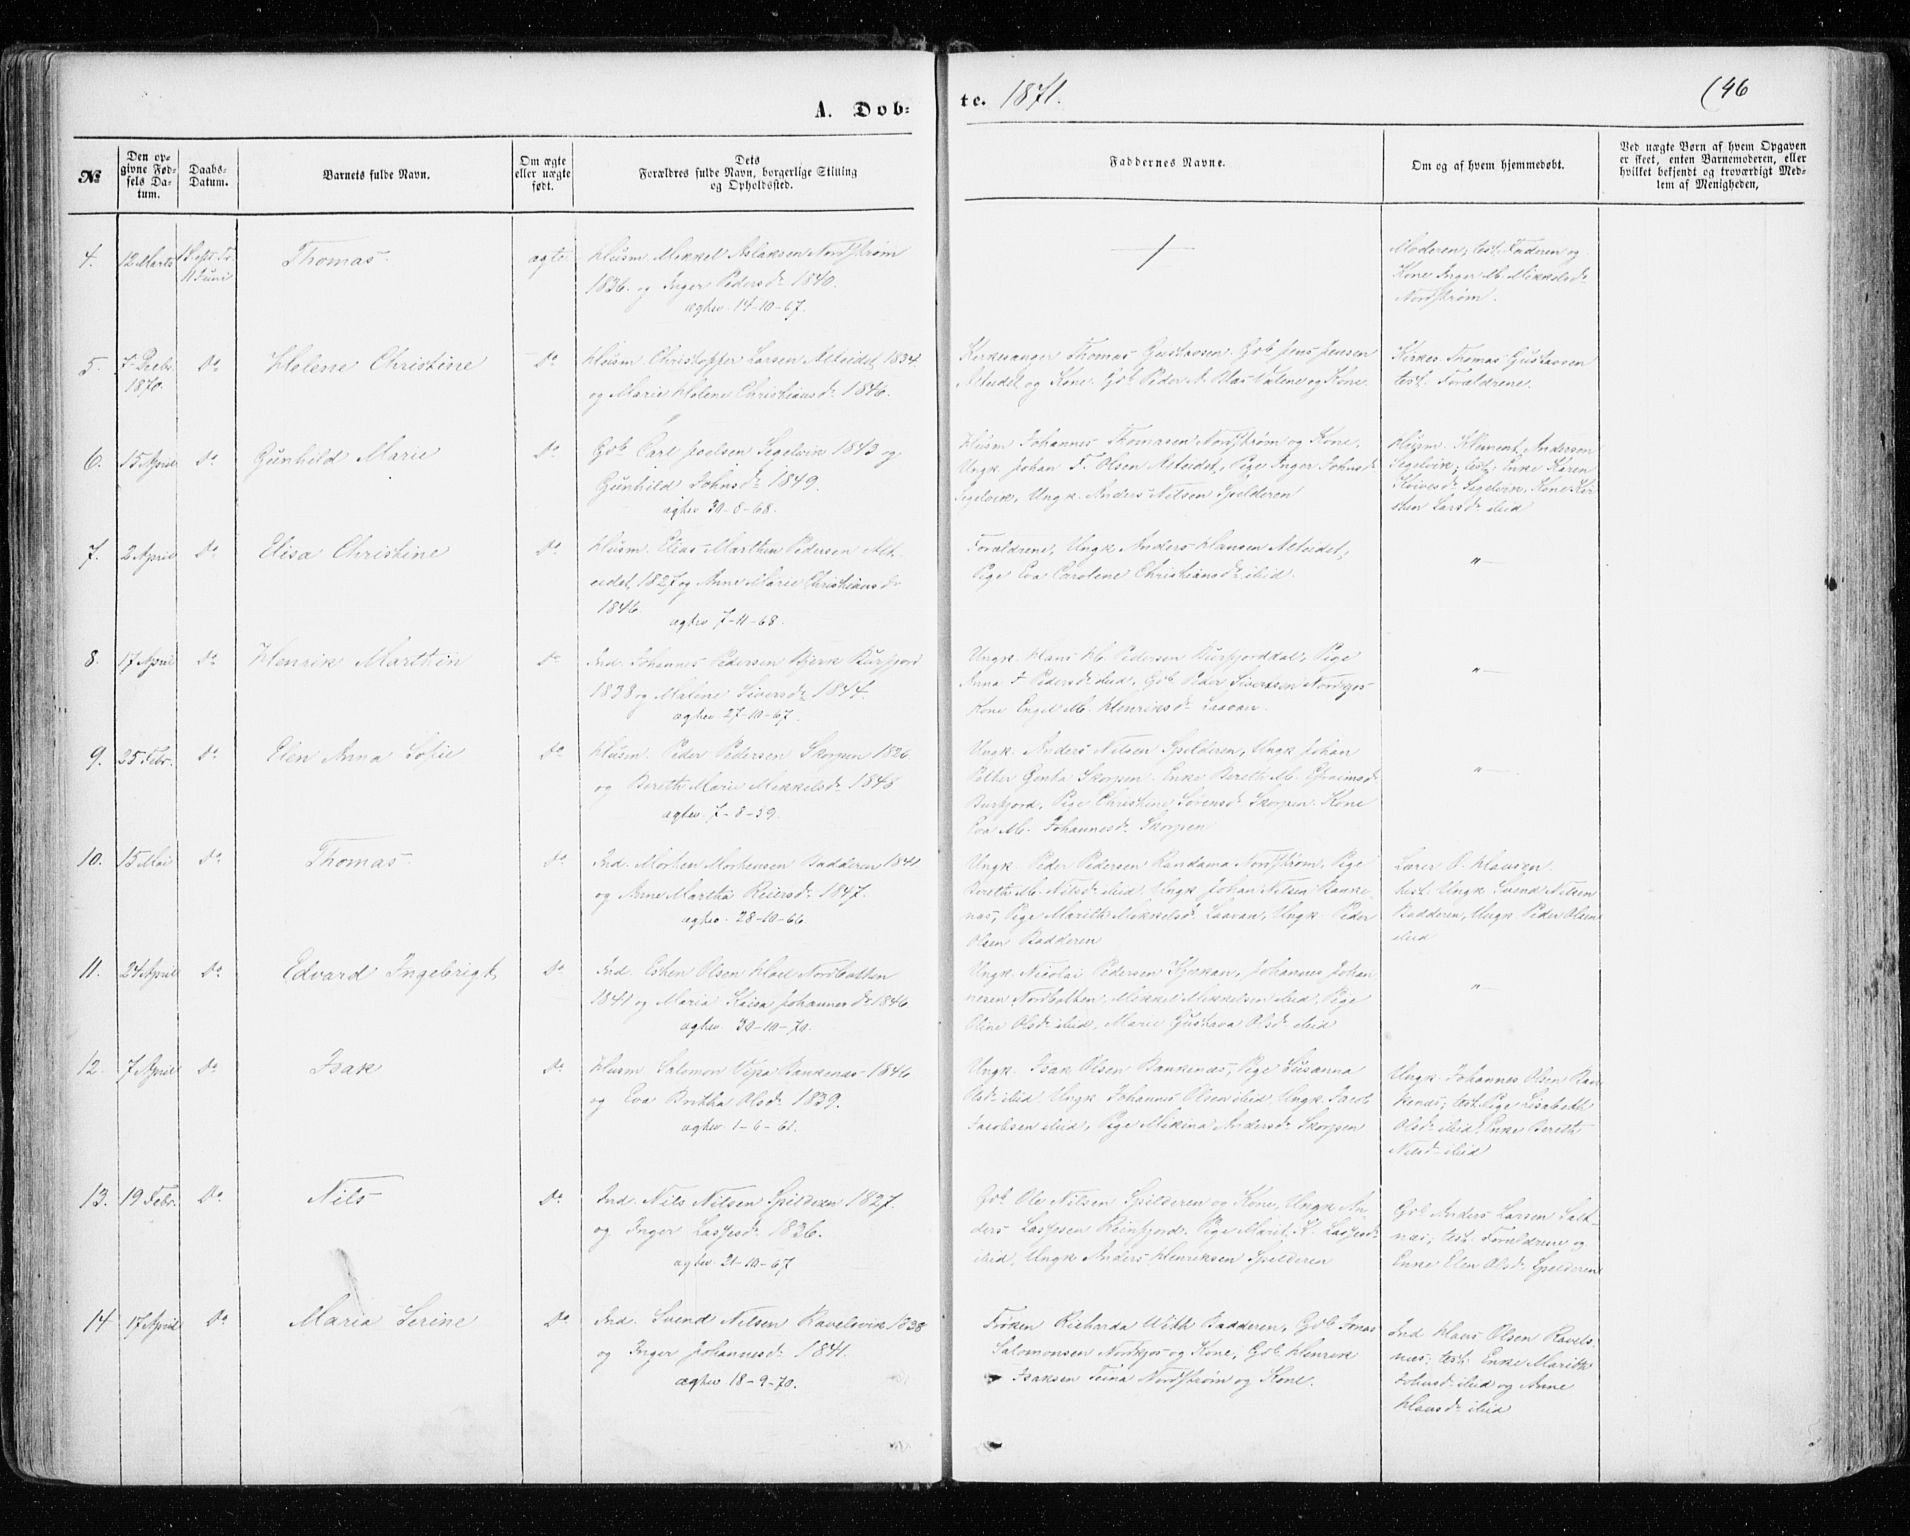 A. Døb-
te. 1871.
(46
№
Den opgivne Fødsels Datum.
Daabs-Datum.
Barnets fulde Navn.
Om ægte eller uægte født.
Dets Forældres fulde Navn, borgerlige Stilling og Opholdssted.
Faddernes Navne.
Om og af hvem hjemmedøbt.
Ved uægte Børn af hvem Opgaven er skeet, enten Barnemoderen, eller hvilket bekjendt og troværdigt Medlem af Menigheden,
4. 12 Marts
11 Juni
Thomas
ægte
Husm. Mikkel Aslaksen Nordstrøm
1836. og Inger Pedersdr 1840.
ægtev. 14-10-67.
Moderen; test: Faderen og
Kone Inger M. Mikkelsdr
Nordstrøm.
5. 7 Decbr
1870.
Do
Helene Christine
Do
Husm. Christopher Larsen Alteidet 1834
og Marie Helene Christiansdr 1846.
Kirkesanger Thomas Gustavsen. Gbr Jens Jensen
Alteidet og Kone. Gbr Peder A. og Kone.
Kirkes. Thomas Gustavsen
test: Forældrene.
6. 15 April Do
Gunhild Marie
Do
Gbr Carl Joelsen Segelvik 1843 og
Gunhild Johnsdr 1849.
ægtev 30-6-68.
Husm Johannes Thomasen Nordstrøm og Kone,
Ungk. Johan F. Olsen Alteidet, Pige Inger Johnsdr
Segelvik, Ungk. Anders Nilsen Spilderen
Husm. Klement Andersen
Segelvik; test: Enke Karen
Segelvik, Kone Kir-
sten Larsdr ibid
7. 2 April Do
Elisa Christine
Do
Husm. Elias Marthin Pedersen Alt-
eidet 1827 og Anne Marie Christiansdr
1846
ægtev 7-11-68.
Forældrene, Ungk Anders Hansen Alteidet,
Pige Eva Caroline Christiansdr ibid.
"-
8. 17 April Do
Henrik Marthin
Do
Ind. Johannes Pedersen Bjerk Burfjord
1838 og Malene Siversdr 1844.
ægtev 27-10-67.
Ungk. Hans H. Pedersen Burfjorddal, Pige
Anna J Pedersdr ibid, Gbr Peder Sivertsen Nordkjos
Kone Engel M. Henriksdr Laavan.
"-
9. 25 Febr. Do
Elen Anna Sofie
Do
Husm. Peder Pedersen Skorpen 1826
og Bereth Marie Mikkelsdr 1848
ægtev. 7-8-59.
Ungk. Anders Nilsen Spilderen, Ungk Johan
Petter Skorpen. Enke Bereth M. Efraimsdr
Burfjord, Pige Christine Sørensdr Skorpen. Kone
Eva M. Johannesdr Skorpen
"-
10. 15 Mai Do
Thomas
Do
Ind. Morten Mortensen Badderen 1841
og Anne Martha Reiersdr 1847.
ægtev. 28-10-66
Ungk Peder Pedersen Randama Nordstrøm. Pige
Bereth M. Nilsdr ibid, Ungk Johan Nilsen Banke-
næs, Pige Marith Mikkelsdr Laavan, Ungk. Peder
Olsen Badderen
Lærer O. Hansen
test. Ungk Svend Nilsen
Badderen, Ungk Peder Olsen
ibid
11. 24 April Do
Edvard Ingebrigt
Do
Ind. Esten Olsen Nordbotten
1841 og Maria Kaisa Johannesdr 1846
ægtev. 30-10-70.
Ungk Nicolai Pedersen Kjækan, Johannes Johan-
nesen Nordbotten, Mikkel Mikkelsen ibid, Pige
Oline Olsdr ibid, Marie Gustava Olsdr ibid
"-
12. 7 April Do
Isak
Do
Husm Salomon Bankenæs 1846
og Eva Britha Olsdr 1839.
ægtev. 1-6-61.
Ungk. Isak Olsen Bankenæs, Pige Susanna
Olsdr ibid, Ungk Johannes Olsen ibid. Ungk. Jacob
Jacobsen ibid, Pige Mikina Andersdr Skorpen
Ungk. Johannes Olsen Ban-
kenæs; test. Pige Lisabeth
Olsdr ibid, Enke Bereth
Nilsdr ibid
13. 19 Febr. Do
Nils
Do
Ind. Nils Nilsen Spilderen 1827.
og Inger Lassesdr 1836.
ægtev. 21-10-67
Gbr Ole Nilsen Spilderen og Kone, Ungk An-
ders Lassesen Reinfjord. Pige Marit K. Lassesdr
ibid, Ungk Anders Henriksen Spilderen
Gbr Anders Larsen Salt-
næs; test. Forældrene og
Enke Elen Olsdr Spilderen
14 17 April Do
Maria Serine
Do
Ind. Svend Nilsen Ravelsvik 1838
og Inger Johannesdr 1841.
ægtev 18-9-70.
Frøken Richarda With Badderen, Gbr Jonas
Salomonsen Nordkjos og Kone, Gbr Henrik
Isaksen Teina Nordstrøm og Kone.
Ind Hans Olsen Ravels-
næs; test: Enke Marith
Johnsdr ibid og Anne
Hansdr ibid